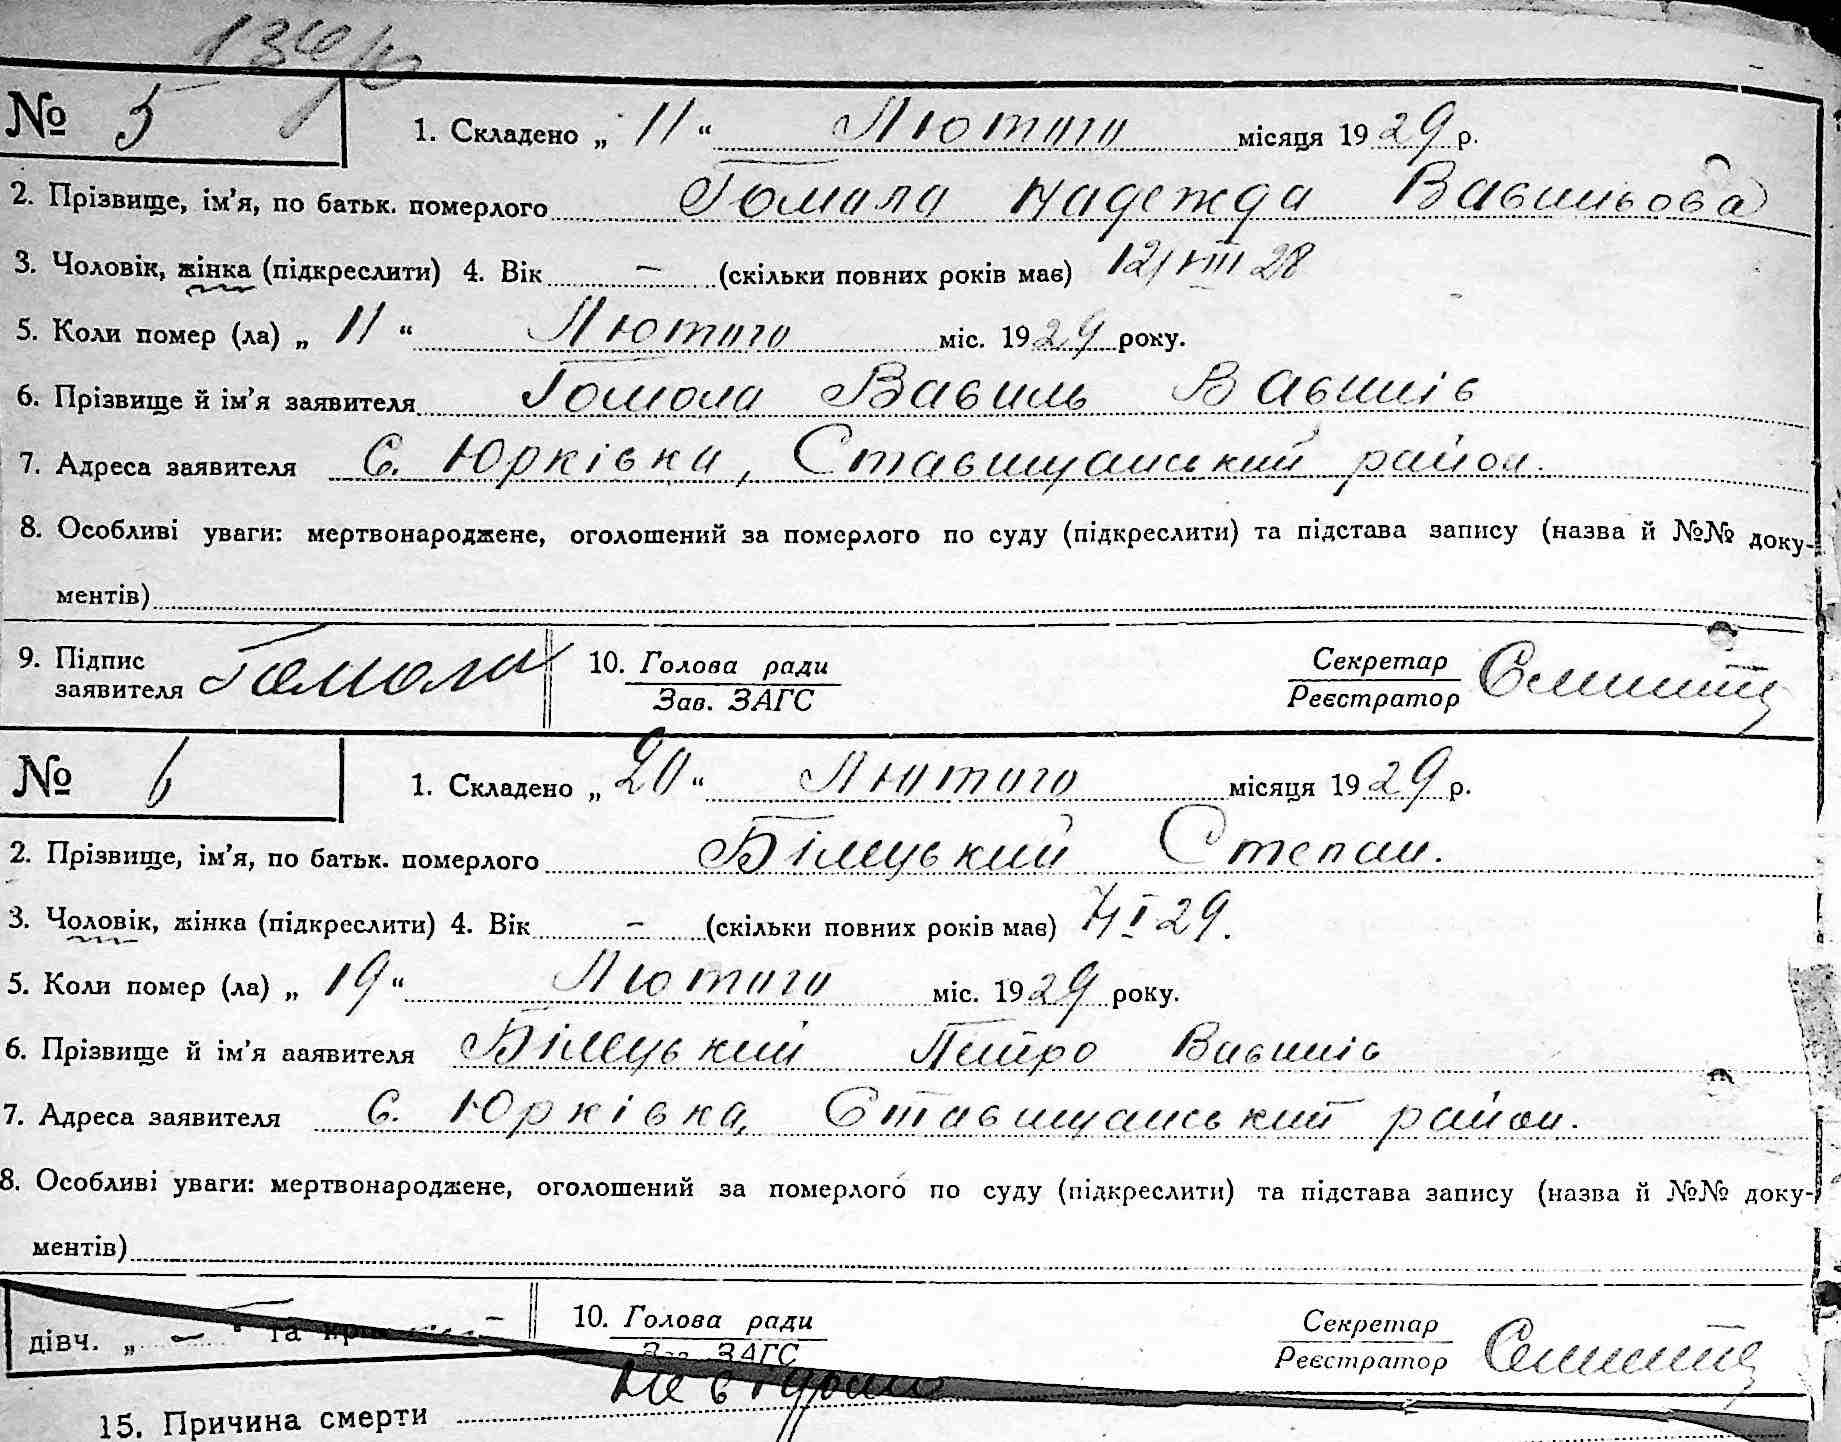 № 5 1. Складено „ 11 “ Лютого місяця 1929 р.
2. Прізвище, ім'я, по батьк. померлого Гомола Надежда Вавильова
3. Чоловік, жінка (підкреслити) 4. Вік – (скільки повних років має) 12/VIII 28
5. Коли помер (ла) „ 11 “ Лютого міс. 1929 року.
6. Прізвище й ім'я заявителя Гомола Вавиль Вавилів
7. Адреса заявителя С. Юрківка, Ставищанський район.
8. Особливі уваги: мертвонароджене, оголошений за померлого по суду (підкреслити) та підстава запису (назва й №№ доку-
ментів)
9. Підпис заявителя Гомола 10. Голова ради Секретар
Зав. ЗАГС Реєстратор
№ 6 1. Складено „ 20 “ Лютого місяця 1929 р.
2. Прізвище, ім'я, по батьк. померлого Білецький Степан.
3. Чоловік, жінка (підкреслити) 4. Вік – (скільки повних років має) 7/I 29.
5. Коли помер (ла) „ 19 “ Лютого міс. 1929 року.
6. Прізвище й ім'я заявителя Білецький Петро Вавилів
7. Адреса заявителя С. Юрківка, Ставищанський район.
8. Особливі уваги: мертвонароджене, оголошений за померлого по суду (підкреслити) та підстава запису (назва й №№ доку-
ментів)
10. Голова ради Секретар
дівч. „ – “ та Зав. ЗАГС Реєстратор
15. Причина смерти